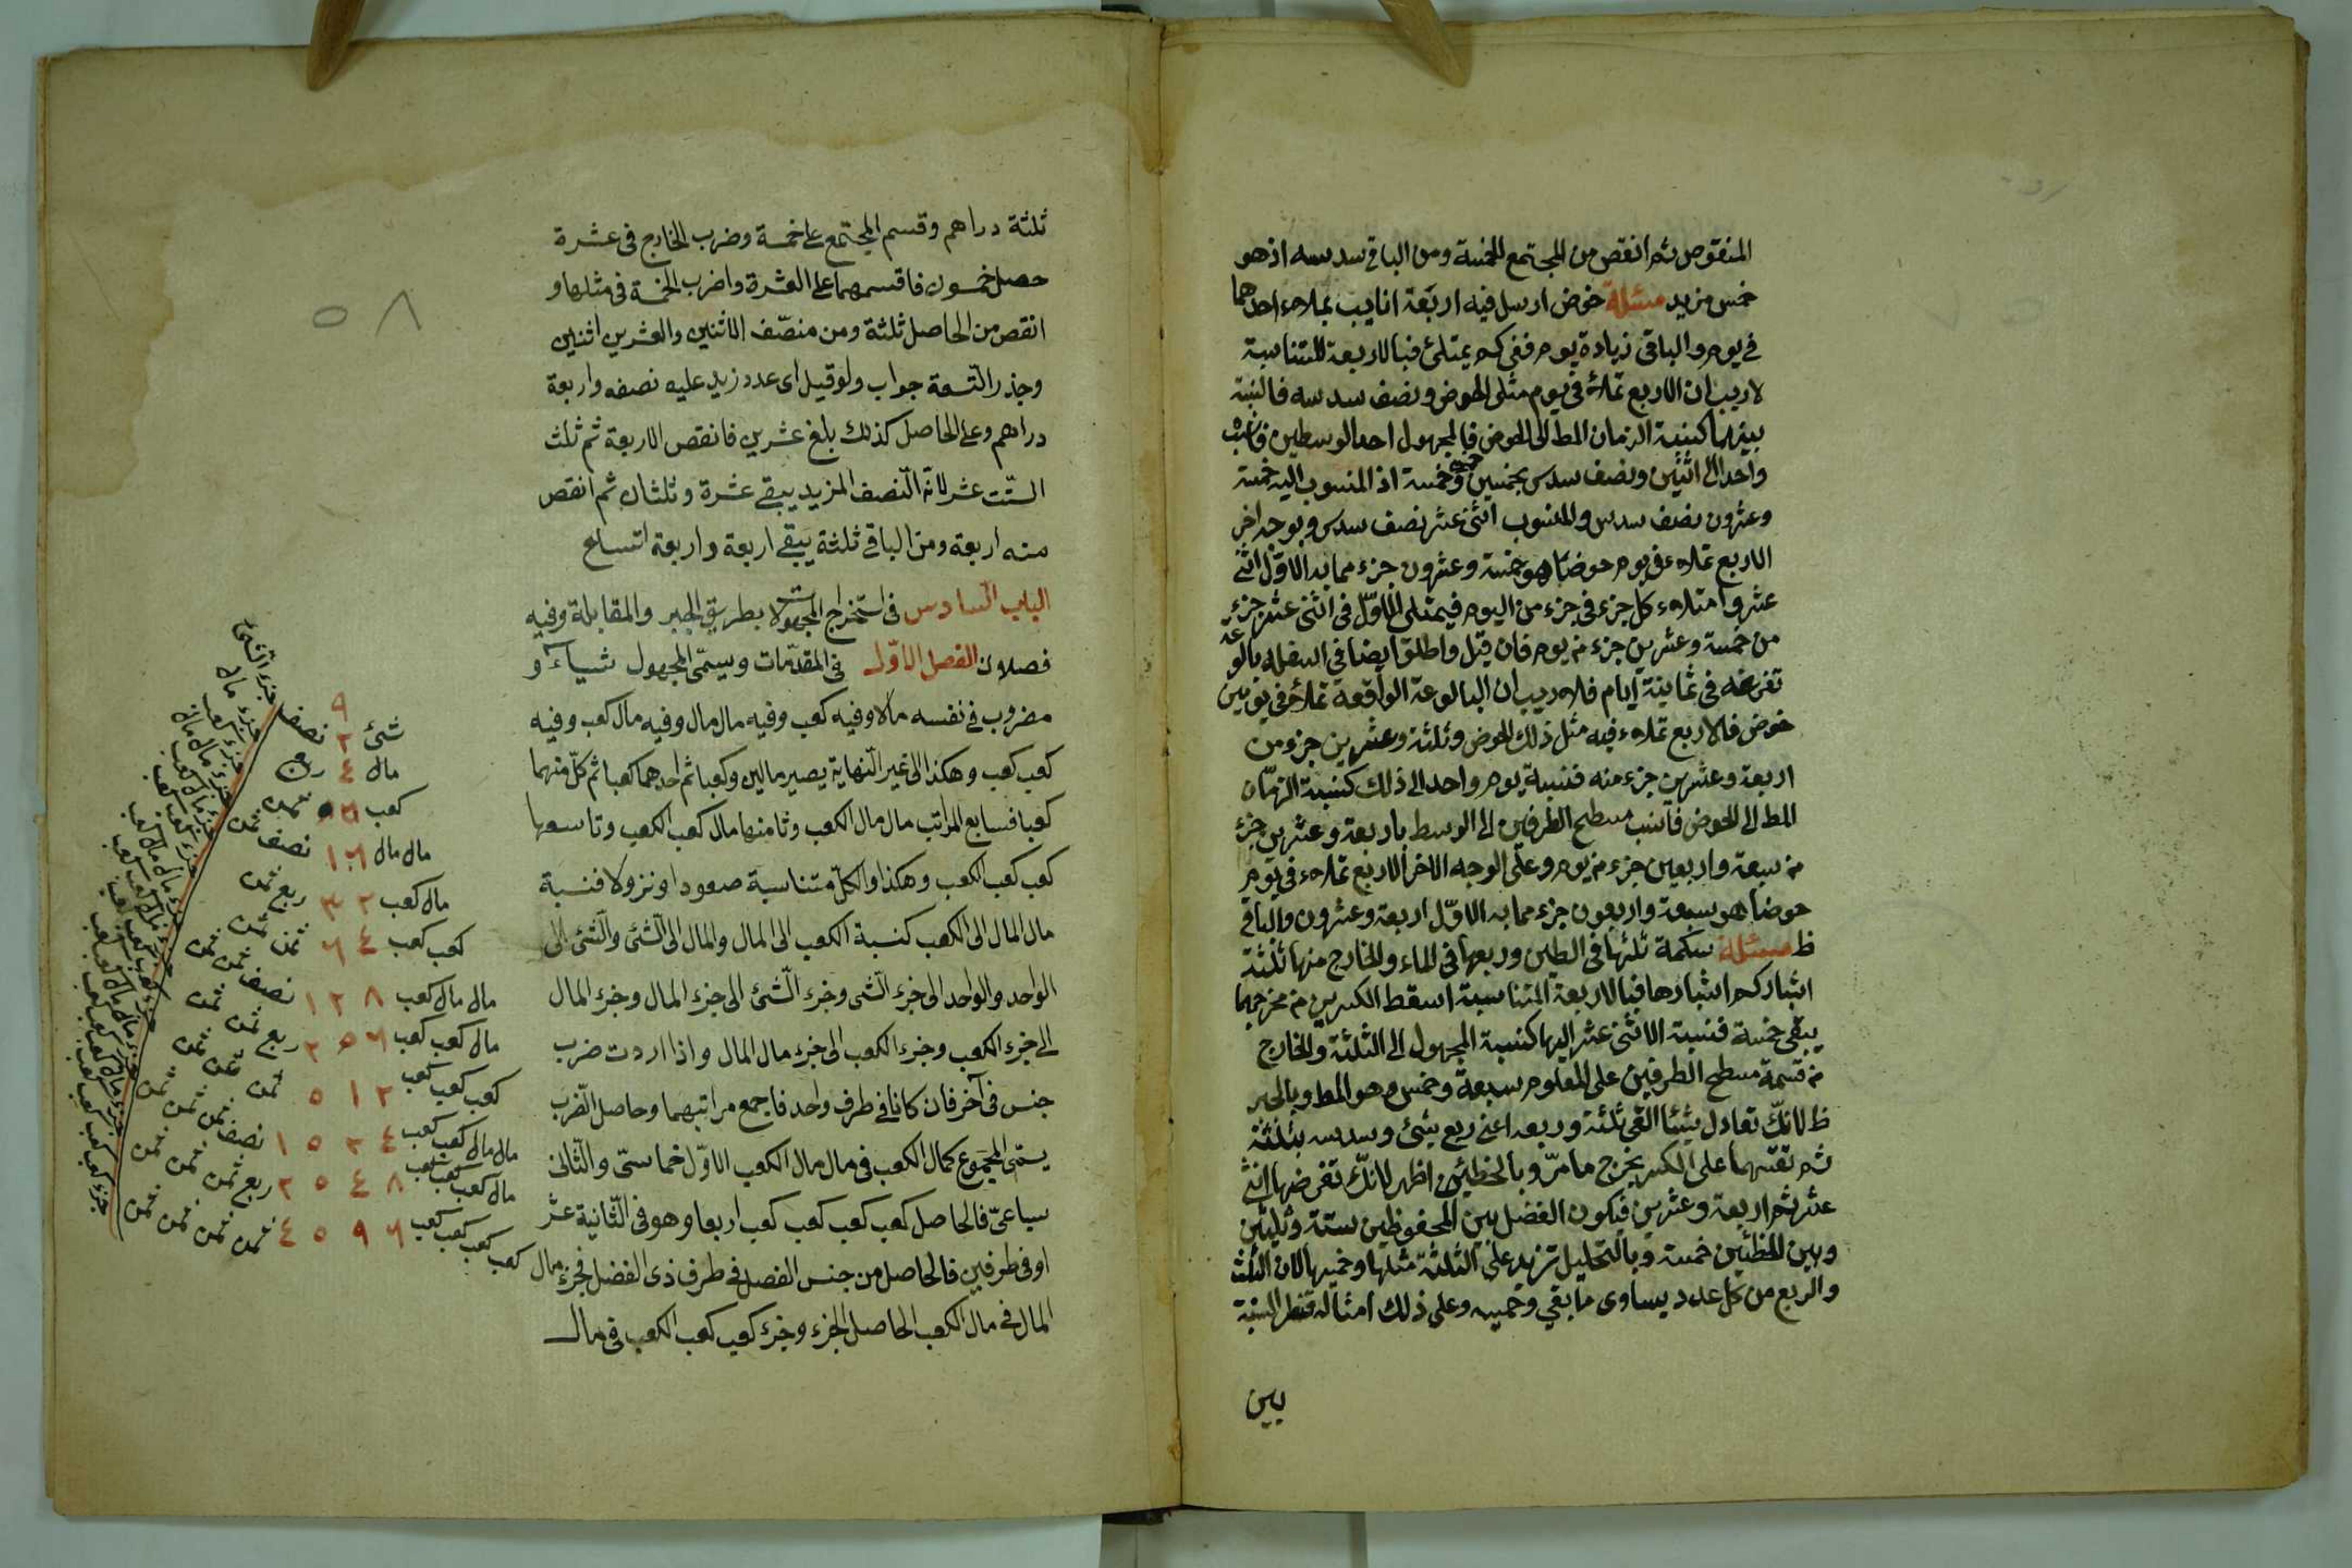 المنقوص ثم انقص من المجتمع الخمسة ومن الباقى سدسه اذ هو
خمس مزيد مسئلة حوض ارسل فيه اربعة انابيب يملاء احدهما
فى يوم والباقى زيادة يوم ففى كم يمتلئ فبالاربعة المتناسبة
لاريب ان الاربع تملأ فى يوم مثلى الحوض ونصف سدسه فالنسبة
بينهما كنسبة الزمان المط الى الحوض فالمجهول احد الوسطين فانسب
واحدا الى اثنين ونصف سدس بخمسين وخمس خمسة اذ المنسوب اليه خمسة
وعشرون نصف سدس والمنسوب اثنى عشر نصف سدس وبوجه اخر
الاربع تملاء فى يوم حوضا هو خمسة وعشرون جزء مما به الاول اثنى
عشر وامتلاء كل جزء فى جزء من اليوم فيمتلى الاول فى اثنى عشر جزء
من خمسة وعشرين جزء من يوم فان قيل واطلق ايضا فى اسفله بالوعة
تفرغه فى ثمانية ايام فلاريب ان البالوعة الواقعة تملأ فى يومين
حوض فالاربع تملاء فيه مثل ذلك الحوض وثلثة وعشرين جزء من
اربعة وعشرين جزء منه فنسبة يوم واحد الى ذلك كنسبة الزمان
المط الى الحوض فانسب مسطح الطرفين الى الوسط باربعة وعشرين جزء
من سبعة واربعين جزء من يوم وعلى الوجه الاخر الاربع تملاء فى يوم
حوضا هو سبعة واربعون جزء مما به الاول اربعة وعشرون والباقى
ظ مسئلة سمكة ثلثها فى الطين وربعها فى الماء والخارج منها ثلثة
اشبار كم اشبارها فبالاربعة المتناسبة اسقط الكسرين من مخرجهما
يبقى خمسة فنسبة الاثنى عشر اليها كنسبة المجهول الى الثلثة والخارج
من قسمة مسطح الطرفين على المعلوم سبعة وخمس وهو المط وبالجبر
ظ لانك تعادل شيئا القى ثلثه وربعه اعنى ربع شئ وسدسه بثلثة
ثم تقسمها على الكسر يخرج ما مر وبالخطئين اظهر لانك تفرضها اثنى
عشر ثم اربعة وعشرين فيكون الفضل بين المحفوظين ستة وثلثين
وبين الخطئين خمسة وبالتحليل تزيد على الثلثة مثلها وخمسها لان الثلث
والربع من كل عدد يساوى ما بقى وخمسه وعلى ذلك امثاله فنظر النسبة
بين
ثلثة دراهم وقسم المجتمع على خمسة وضرب الخارج فى عشرة
حصل خمسون فاقسمهما على العشرة واضرب الخمسة فى مثلها و
انقص من الحاصل ثلثة ومن منصّف الاثنين والعشرين اثنين
وجذر التسعة جواب ولو قيل اى عدد زيد عليه نصفه واربعة
دراهم وعلى الحاصل كذلك بلغ عشرين فانقص الاربعة ثم ثلث
الستّ عشر لانه النصف المزيد يبقى عشرة وثلثان ثم انقص
منه اربعة ومن الباقى ثلثة يبقى اربعة واربعة اتساع
الباب السادس فى استخراج المجهولات بطريق الجبر والمقابلة وفيه
فصلان الفصل الاول فى المقدمات ويسمى المجهول شياء و
مضروب فى نفسه مالا وفيه كعب وفيه مال مال وفيه مال كعب وفيه
كعب كعب وهكذا الى غير النهاية يصير مالين وكعبا ثم احدهما كعبا ثم كل منهما
كعبا فسابع المراتب مال مال الكعب وثامنها مال كعب الكعب وتاسعها
كعب كعب الكعب وهكذا والكل متناسبة صعودا ونزولا فنسبة
مال المال الى الكعب كنسبة الكعب الى المال والمال الى الشئ والشئ الى
الواحد والواحد الى جزء الشى وجزء الشئ الى جزء المال وجزء المال
الى جزء الكعب وجزء الكعب الى جزء مال المال واذا اردت ضرب
جنس فى آخر فان كانا فى طرف واحد فاجمع مراتبهما وحاصل الضرب
يسمى المجموع كمال الكعب فى مال مال الكعب الاول خماسى والثانى
سباعىّ فالحاصل كعب كعب كعب كعب اربعا وهو فى الثانية عشر
او فى طرفين فالحاصل من جنس الفضل فى طرف ذى الفضل فجزء مال
المال فى مال الكعب الحاصل الجزء وجزء كعب كعب الكعب فى مال
٥٨
٩
شئ ٢ نصف جزء الشئ
مال ٤ ربع جزء مال
كعب ثمن جزء كعب
مال مال ١٦ نصف ثمن
مال كعب ٣٢ ربع ثمن
كعب كعب ٦٤ ثمن ثمن
مال مال كعب ١٢٨ نصف ثمن ثمن
مال كعب كعب ٢٥٦ ربع ثمن ثمن
كعب كعب كعب ٥١٢ ثمن ثمن ثمن
مال مال كعب كعب نصف ثمن ثمن ثمن
مال كعب كعب كعب ربع ثمن ثمن ثمن
كعب كعب كعب كعب ثمن ثمن ثمن ثمن